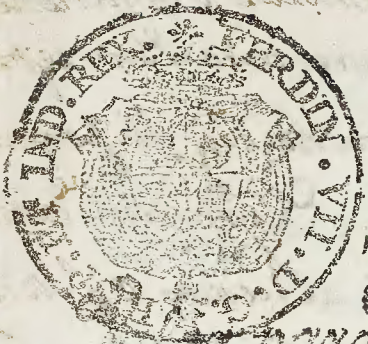 FERDIN · VII · D · G · ET IND · REX ·